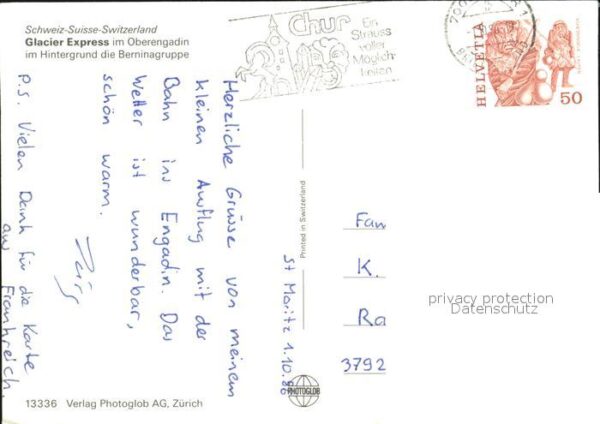 Schweiz-Suisse-Switzerland
Glacier Express im Oberengadin
im Hintergrund die Berninagruppe
Chur
Ein
Strauss
voller
Möglich-
keiten
HELVETIA
50
St Moritz 1.10.86
Herzliche Grüsse von meinem
kleinen Ausflug mit der
Bahn ins Engadin. Das
Wetter ist wunderbar,
schön warm.
P.S. Vielen Dank für die Karte
aus Frankreich.
Printed in Switzerland
Fam
K.
Ra
3792
privacy protection
Datenschutz
PHOTOGLOB
13336 Verlag Photoglob AG, Zürich